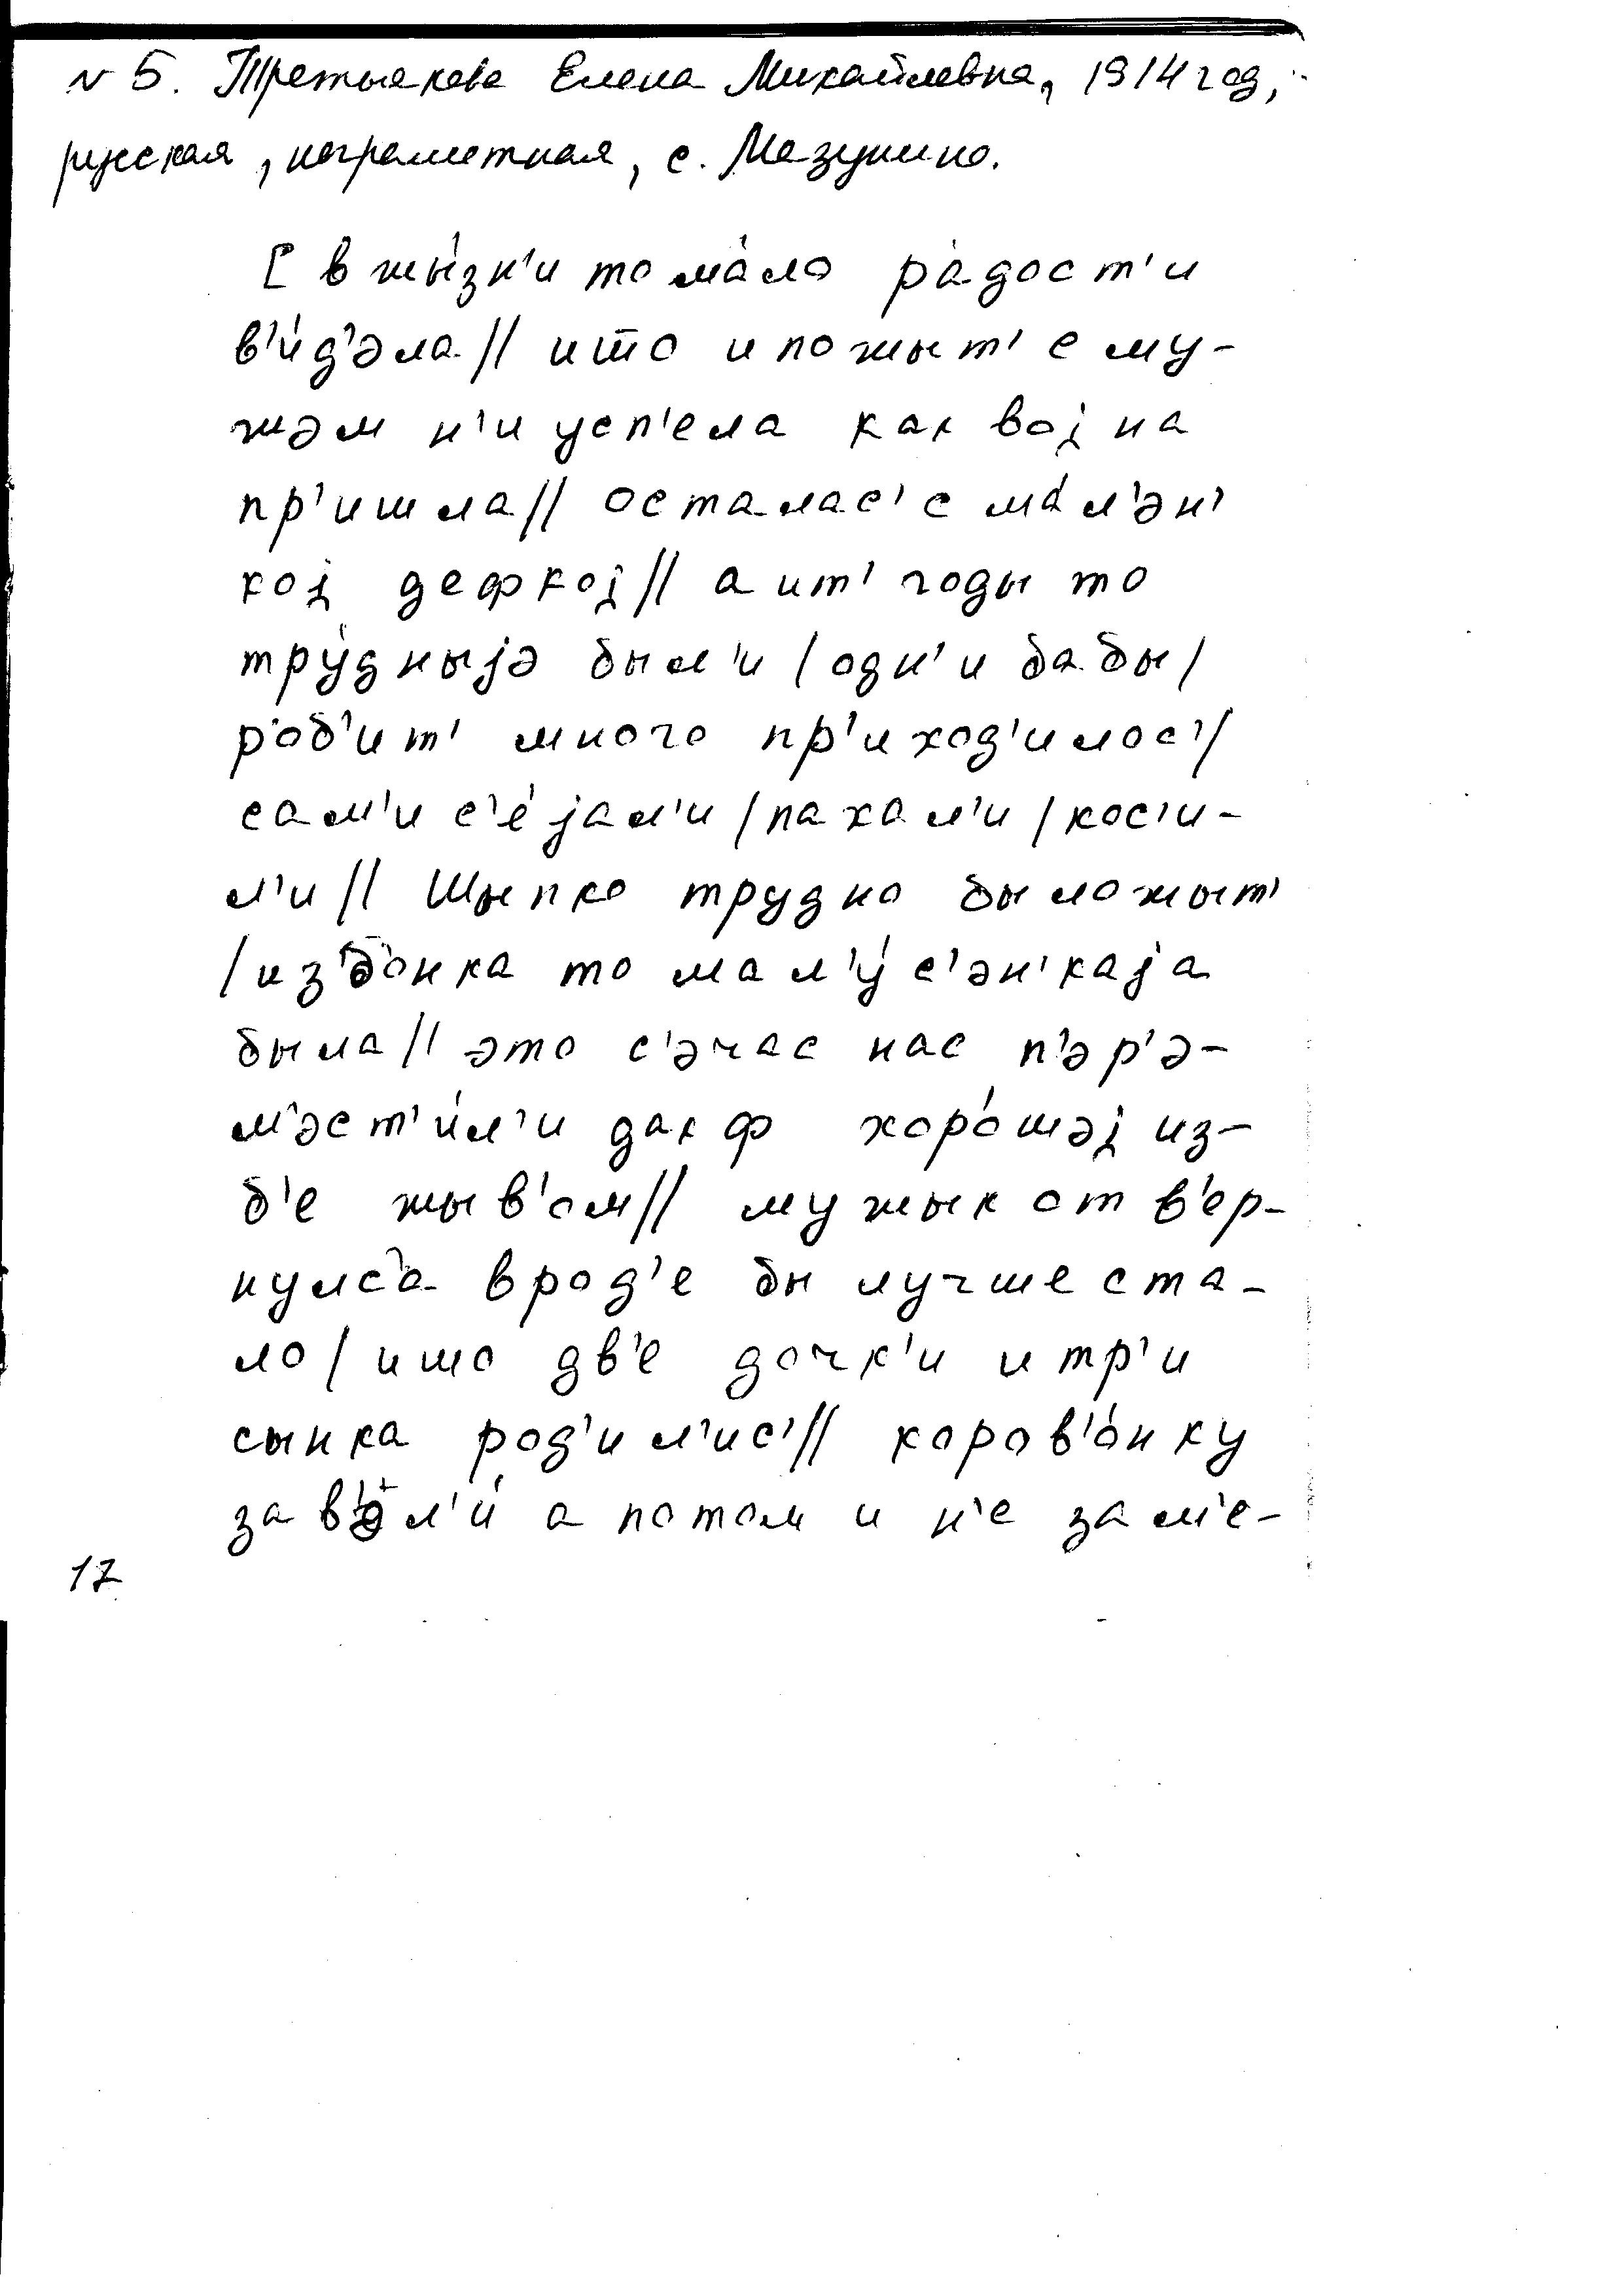 № 5. Третьякова Елена Михайловна, 1914 год,
русская, неграмотная, с. Мазунино.
[ в жы́зн'и то ма́ло ра́дост'и
в'и́д'әла // ишо ипожыт' с му-
жәм н'и усп'ела как војна
пр'ишла // осталас' с ма́л'ән'
кој дефкој // а ит' годы то
тру́дныјә был'и / одн'и бабы /
ро́б'ит' много пр'иход'илос' /
сам'и с'е́јал'и / пахал'и / кос'и-
л'и // шыпко трудно было жыт'
/ изб'о́нка то мал'у́с'ән'каја
была // это с'әчас нас п'әр'ә-
м'әст'и́л'и дак ф хоро́шәј из-
б'е жыв'ом // мужык от в'ер-
нулс'а врод'е бы лучше ста-
ло / ишо дв'е дочк'и и тр'и
сынка род'ил'ис' // коров'о́нку
зав'әл'и́ а потом и н'е зам'е-
17